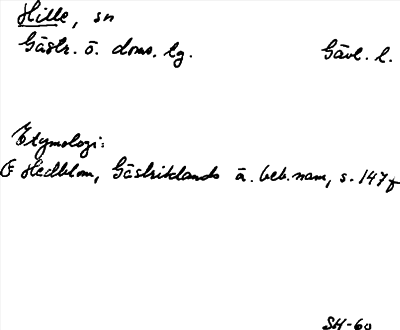 Hille, sn
Gästr. ö. doms. lg. Gävl. l.
Etymologi:
F Hedblom, Gästriklands ä. beb.namn, s. 147 f
SH-60